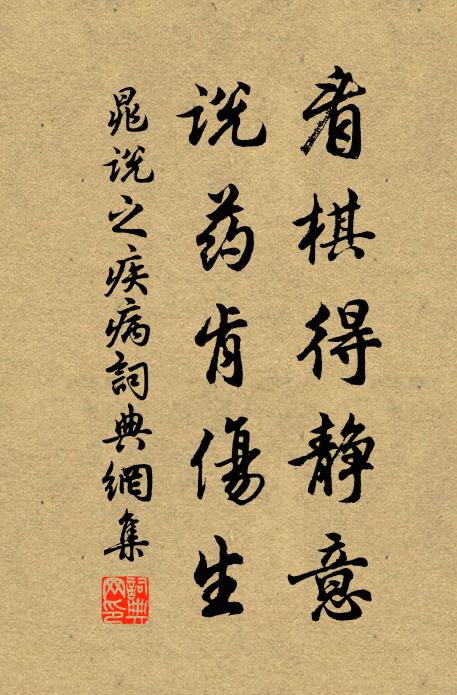 看棋得静意
说药肯傷生
晁说之疾病詞典網集
詞典网印